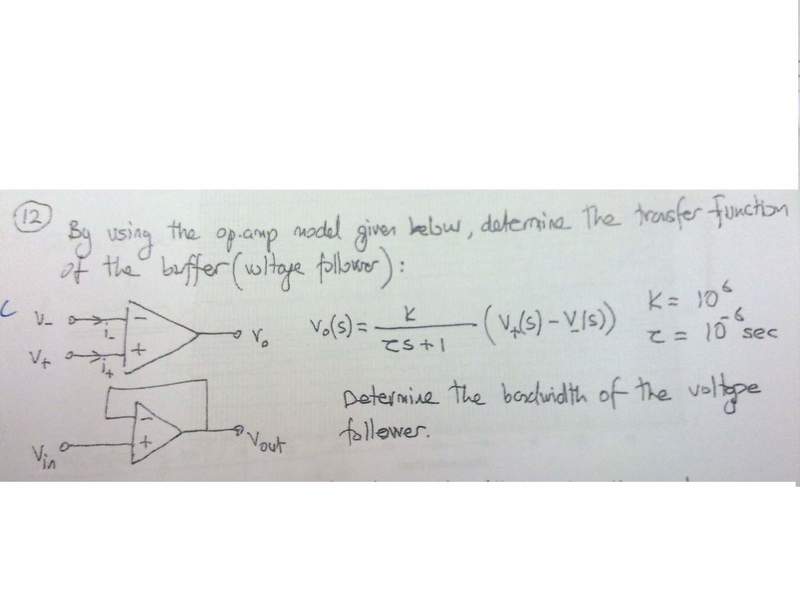 12 By using the op.amp model given below, determine the transfer function
of the buffer (voltage follower):
V- i- - Vo
V+ i+ +
Vo(s) = K / τs+1 (V+(s) - V-(s))
K = 10^6
τ = 10^-6 sec
Determine the bandwidth of the voltage
follower.
Vin - + Vout